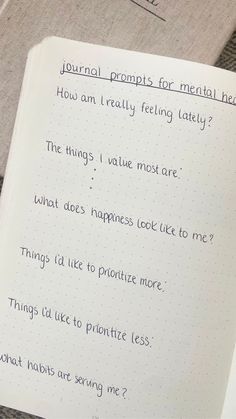 journal prompts for mental hea
How am I really feeling lately?
The things I value most are:
What does happiness look like to me?
Things I'd like to prioritize more:
Things I'd like to prioritize less:
what habits are serving me?